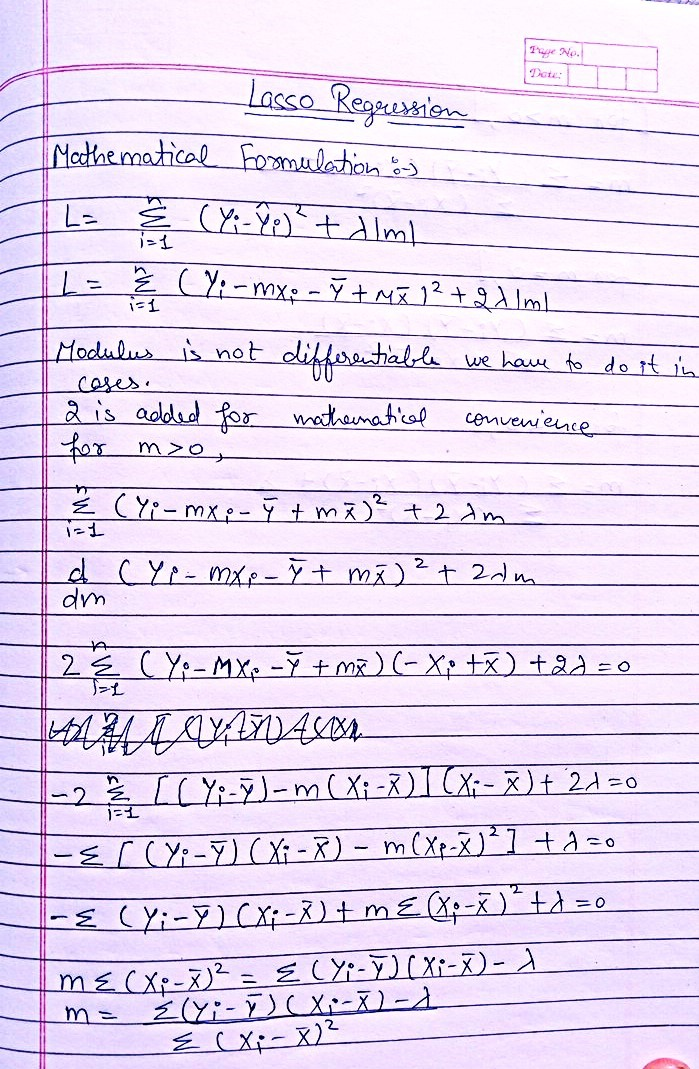 Page No.
Date:
Lasso Regression
Mathematical Formulation :->
L = n Σ i=1 (Yi-Ŷi)² + λ|m|
L = n Σ i=1 (Yi-mxi-Ȳ+Mx̄)² + 2λ|m|
Modulus is not differentiable we have to do it in
cases.
2 is added for mathematical convenience
for m>0,
n Σ i=1 (Yi-mxi-Ȳ+mx̄)² + 2λm
d/dm (Yi-mxi-Ȳ+mx̄)² + 2λm
2 n Σ i=1 (Yi-MXi-Ȳ+mx̄)(-Xi+x̄) + 2λ = 0
-2 n Σ i=1 [(Yi-ȳ)-m(Xi-x̄)](Xi-x̄) + 2λ = 0
-Σ [(Yi-Ȳ)(Xi-X̄) - m(Xi-x̄)²] + λ = 0
-Σ (Yi-Ȳ)(Xi-x̄) + mΣ(Xi-x̄)² + λ = 0
mΣ(Xi-x̄)² = Σ(Yi-Ȳ)(Xi-x̄) - λ
m = Σ(Yi-Ȳ)(Xi-x̄) - λ
Σ(Xi-x̄)²